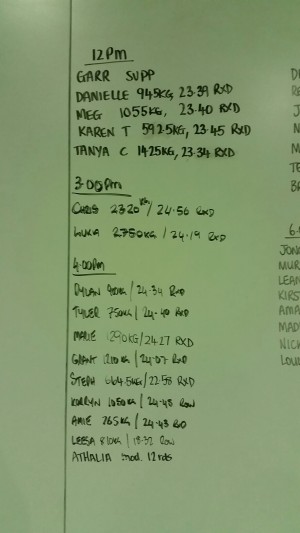 12pm
GARR SUPP
DANIELLE 945KG, 23.39 RXD
MEG 1055KG, 23.40 RXD
KAREN T 592.5KG, 23.45 RXD
TANYA C 1425KG, 23.34 RXD
3:00pm
CHRIS 2320KG / 24-56 RXD
LUKIA 2750KG / 24-19 RXD
4:00pm
DYLAN / 24-34 RXD
TYLER 750KG / 24-40 RXD
MARIE 1290KG / 24.27 RXD
GRANT 1210KG / 24-07 RXD
STEPH 664.5KG / 22-58 RXD
KORRYN 1050KG / 24-48 ROW
AMIE 765KG / 24-43 RXD
LEESA 810KG / 18-32 ROW
ATHALIA mod. 12 rds
6
JONO
MUR
LEAN
KIRST
AMA
MAD
NICK
LOUI